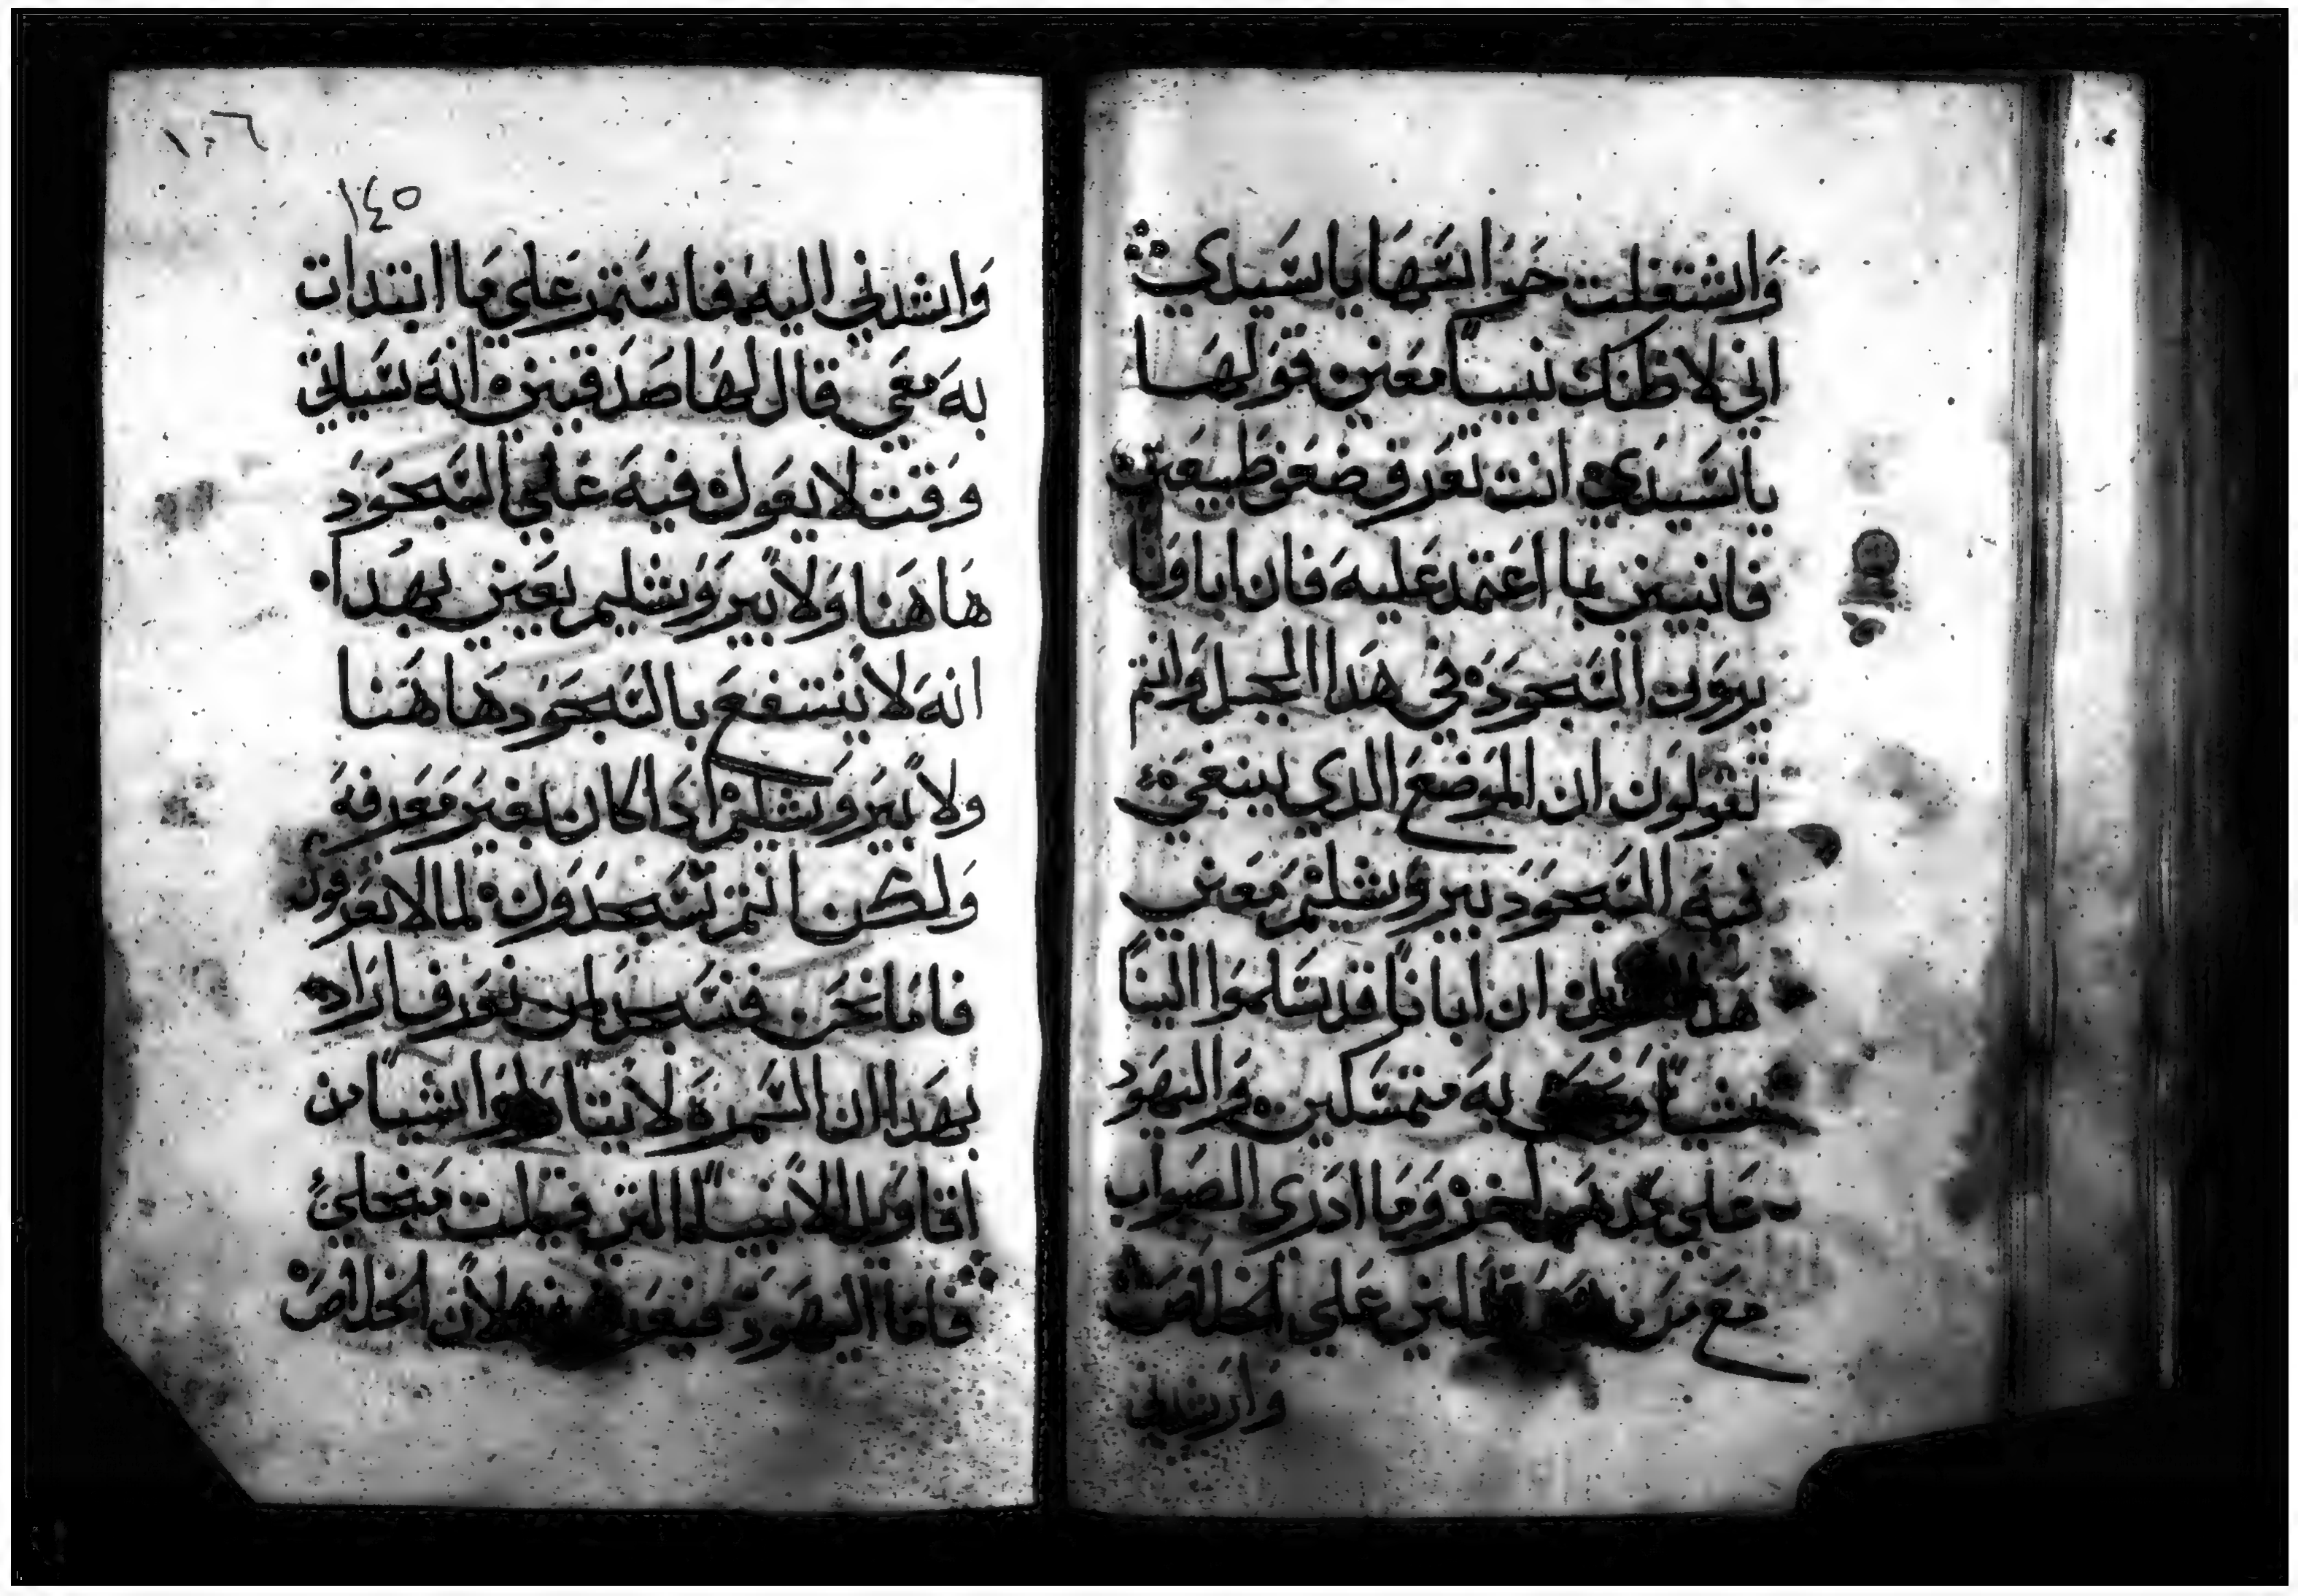 واشتغلت حواسها يا سيدي
اني لاظنك نبيا معني قولها
يا سيدي انت تعرف ضعف طبيعتي
فانبيني بما اعتمد عليه فان اباونا
يرون السجود في هدا الجبل وانتم
تقولون ان الموضع الدي ينبغي
فيه السجود بيروشليم معني
هدا ان اباونا قد سلموا الينا
شيا به متمسكين واليهود
علي اخر وما ادري الصواب
مع من علي الخلاص
وارشدني
١٠٦
١٤٥
وارشدني اليه فاستمر علي ما ابتدات
به معي قال لها صدقيني انه سياتي
وقت لا يقول فيه علي السجود
هاهنا ولا بيروشليم يعني بهدا
انه لا ينتفع بالسجود هاهنا
ولا بيروشليم ادا كان بغير معرفه
ولكن انتم تسجدون لما لا تعرفون
فاما نحن فنسجد لمن نعرف اراد
بهدا ان السمره لا يتاملوا شيا من
اقاويل الانبيا التي قيلت من اجلي
فاما اليهود لان الخلاص